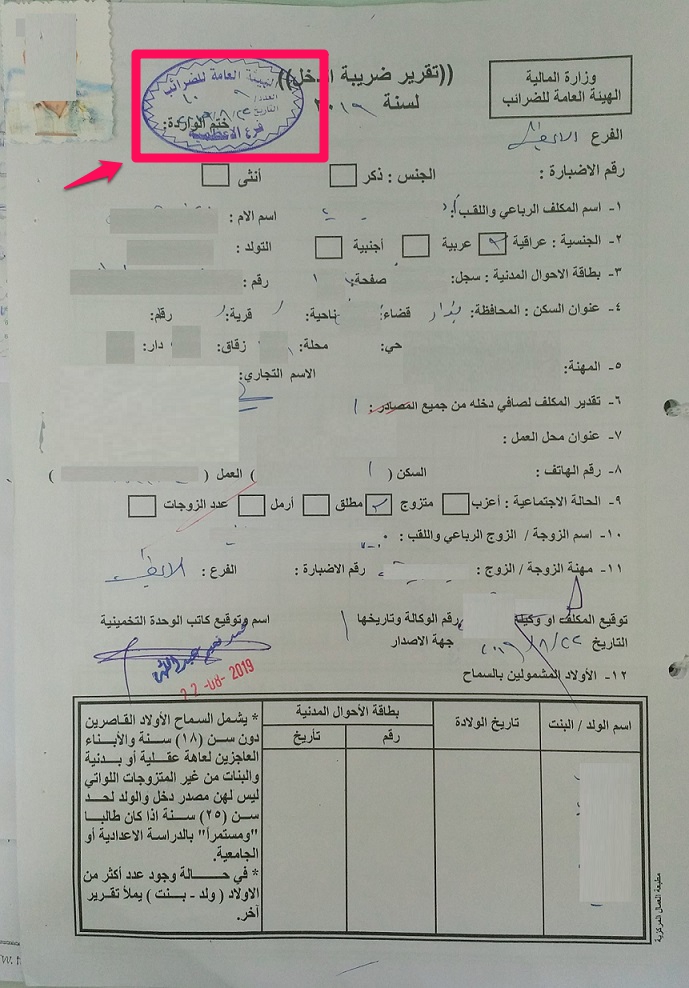 وزارة المالية
الهيئة العامة للضرائب
((تقرير ضريبة الدخل))
لسنة ٢٠١٩
الهيئة العامة للضرائب
العدد
التاريخ
فرع الاعظمية
ختم الواردة:
الفرع
رقم الاضبارة :
الجنس : ذكر أنثى
١- اسم المكلف الرباعي واللقب: اسم الام :
٢- الجنسية : عراقية عربية أجنبية التولد :
٣- بطاقة الاحوال المدنية : سجل: صفحة: ١ رقم :
٤- عنوان السكن : المحافظة: بغداد قضاء: ناحية: قرية: رقم:
حي: محلة: زقاق: دار:
٥- المهنة:
الاسم التجاري:
٦- تقدير المكلف لصافي دخله من جميع المصادر :
٧- عنوان محل العمل :
٨- رقم الهاتف : السكن ( ) العمل ( )
٩- الحالة الاجتماعية : أعزب متزوج مطلق أرمل عدد الزوجات
١٠- اسم الزوجة / الزوج الرباعي واللقب :
١١- مهنة الزوجة / الزوج : رقم الاضبارة : الفرع :
توقيع المكلف او وكيله رقم الوكالة وتاريخها اسم وتوقيع كاتب الوحدة التخمينية
التاريخ ٢٢/٨/ جهة الاصدار
2019
١٢- الأولاد المشمولين بالسماح
اسم الولد / البنت تاريخ الولادة بطاقة الأحوال المدنية
رقم تأريخ
* يشمل السماح الأولاد القاصرين
دون سن (١٨) سنة والأبناء
العاجزين لعاهة عقلية أو بدنية
والبنات من غير المتزوجات اللواتي
ليس لهن مصدر دخل والولد لحد
سن (٢٥) سنة اذا كان طالبا
"ومستمراً" بالدراسة الاعدادية أو
الجامعية.
* في حالة وجود عدد أكثر من
الاولاد ( ولد - بنت ) يملأ تقرير
آخر.
مطبعة العمال المركزية